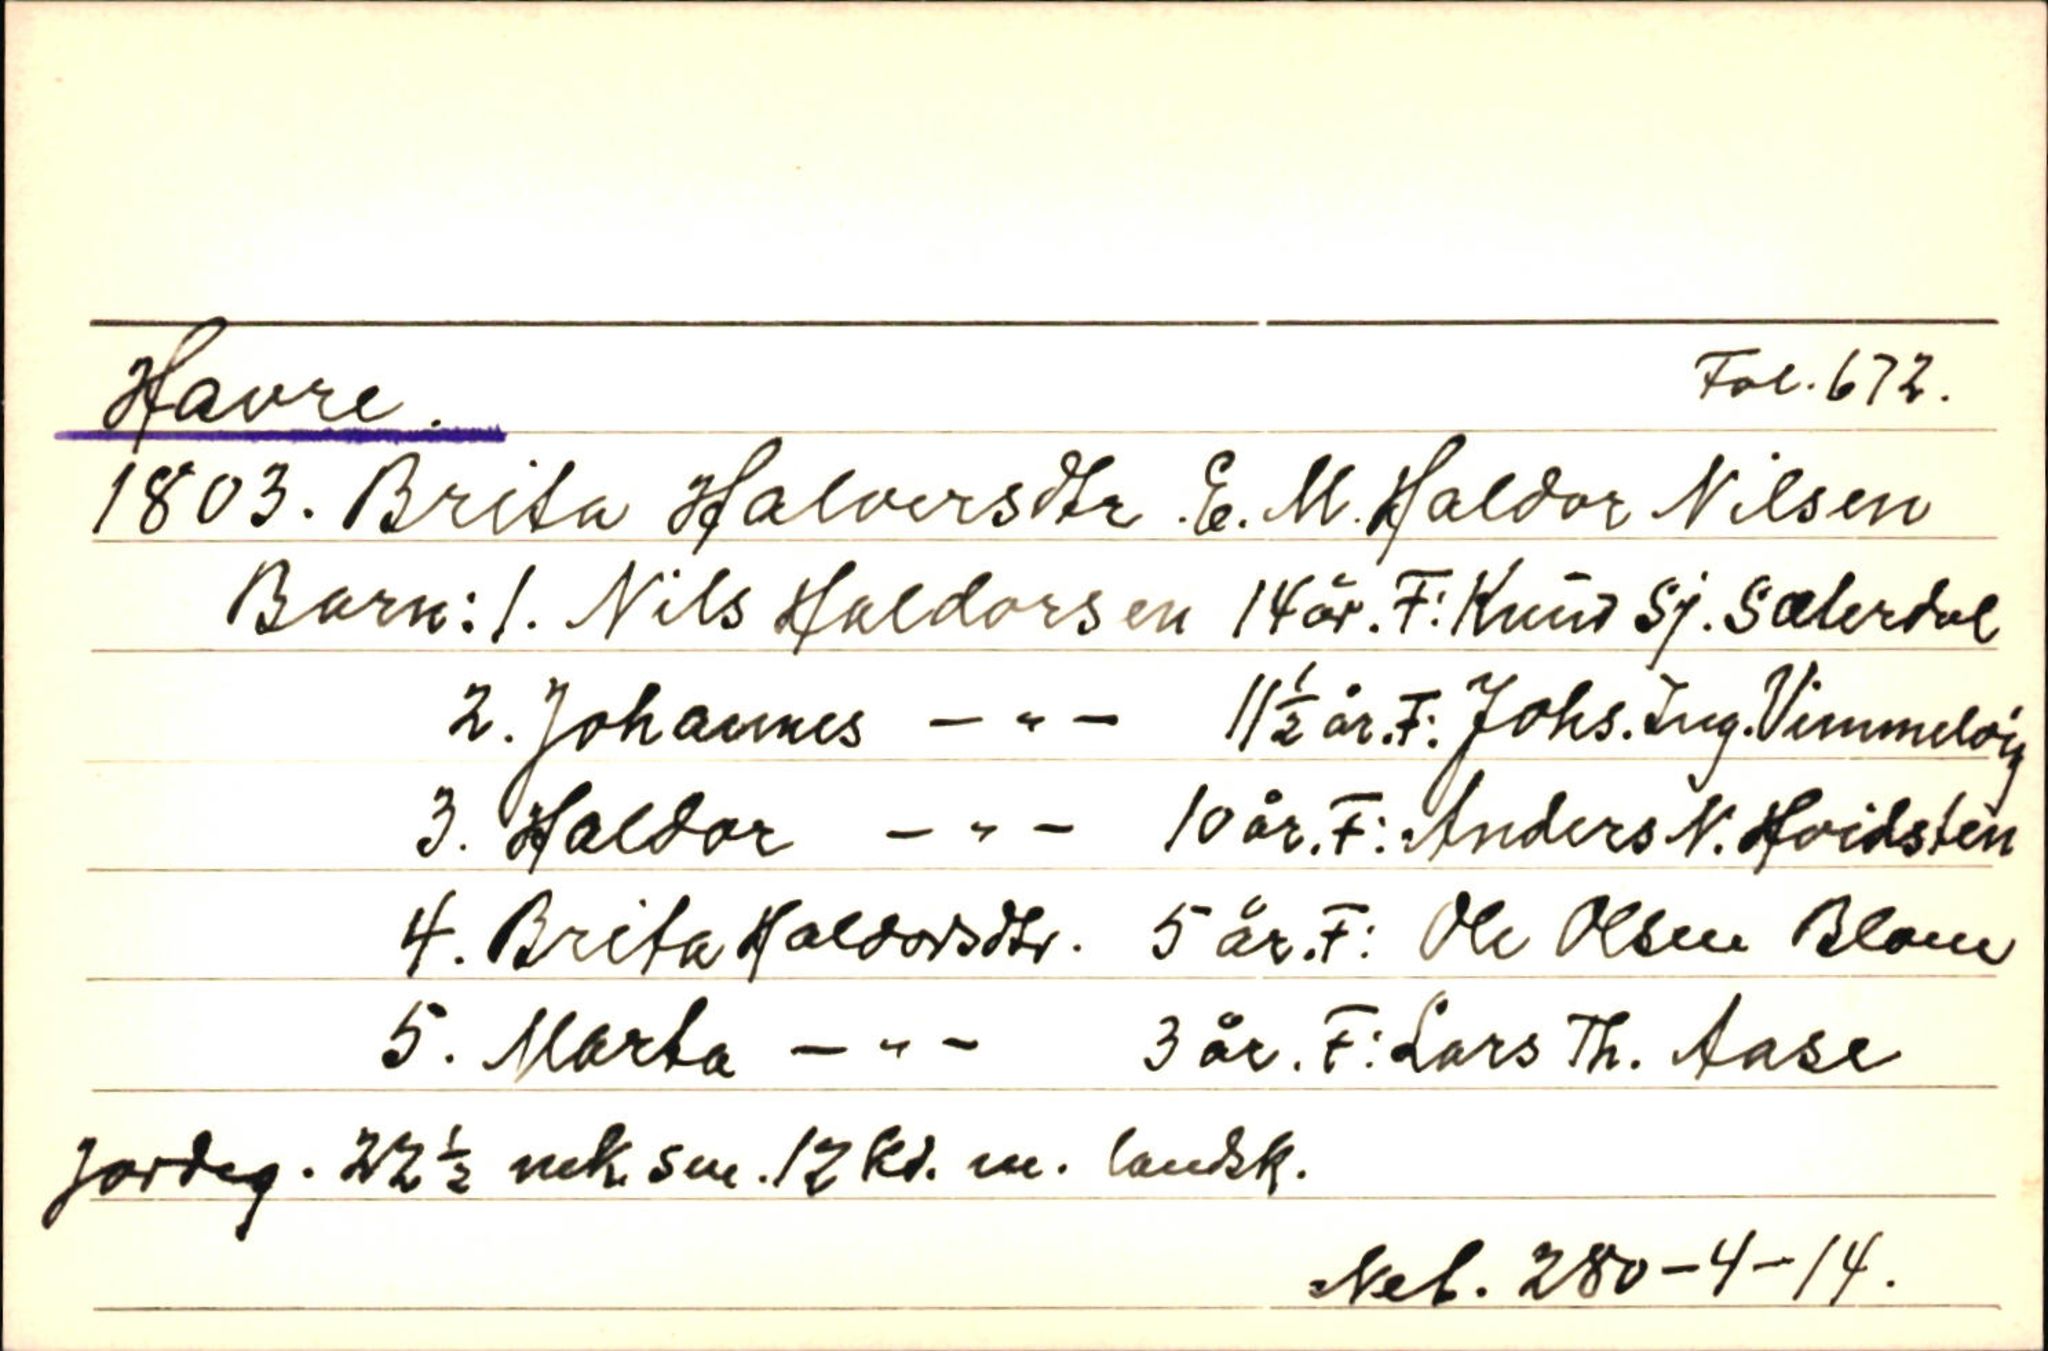 Havre.
Fol. 672.
1803. Brita Halversdtr. E. M. Haldor Nilsen
Barn: 1. Nils Haldorsen 14 år. F: Knud Sj. Sælerdal
2. Johannes — " — 11½ år. F: Johs. Ing. Vimmelvig
3. Haldor — " — 10 år. F: Anders N. Hvidsten
4. Brita Haldorsdtr. 5 år. F: Ole Olsen Blom
5. Marta — " — 3 år. F: Lars Th. Aase
Jordeg. 22½ mk. sm. 12 kd. m. landsk.
Net. 280-4-14.